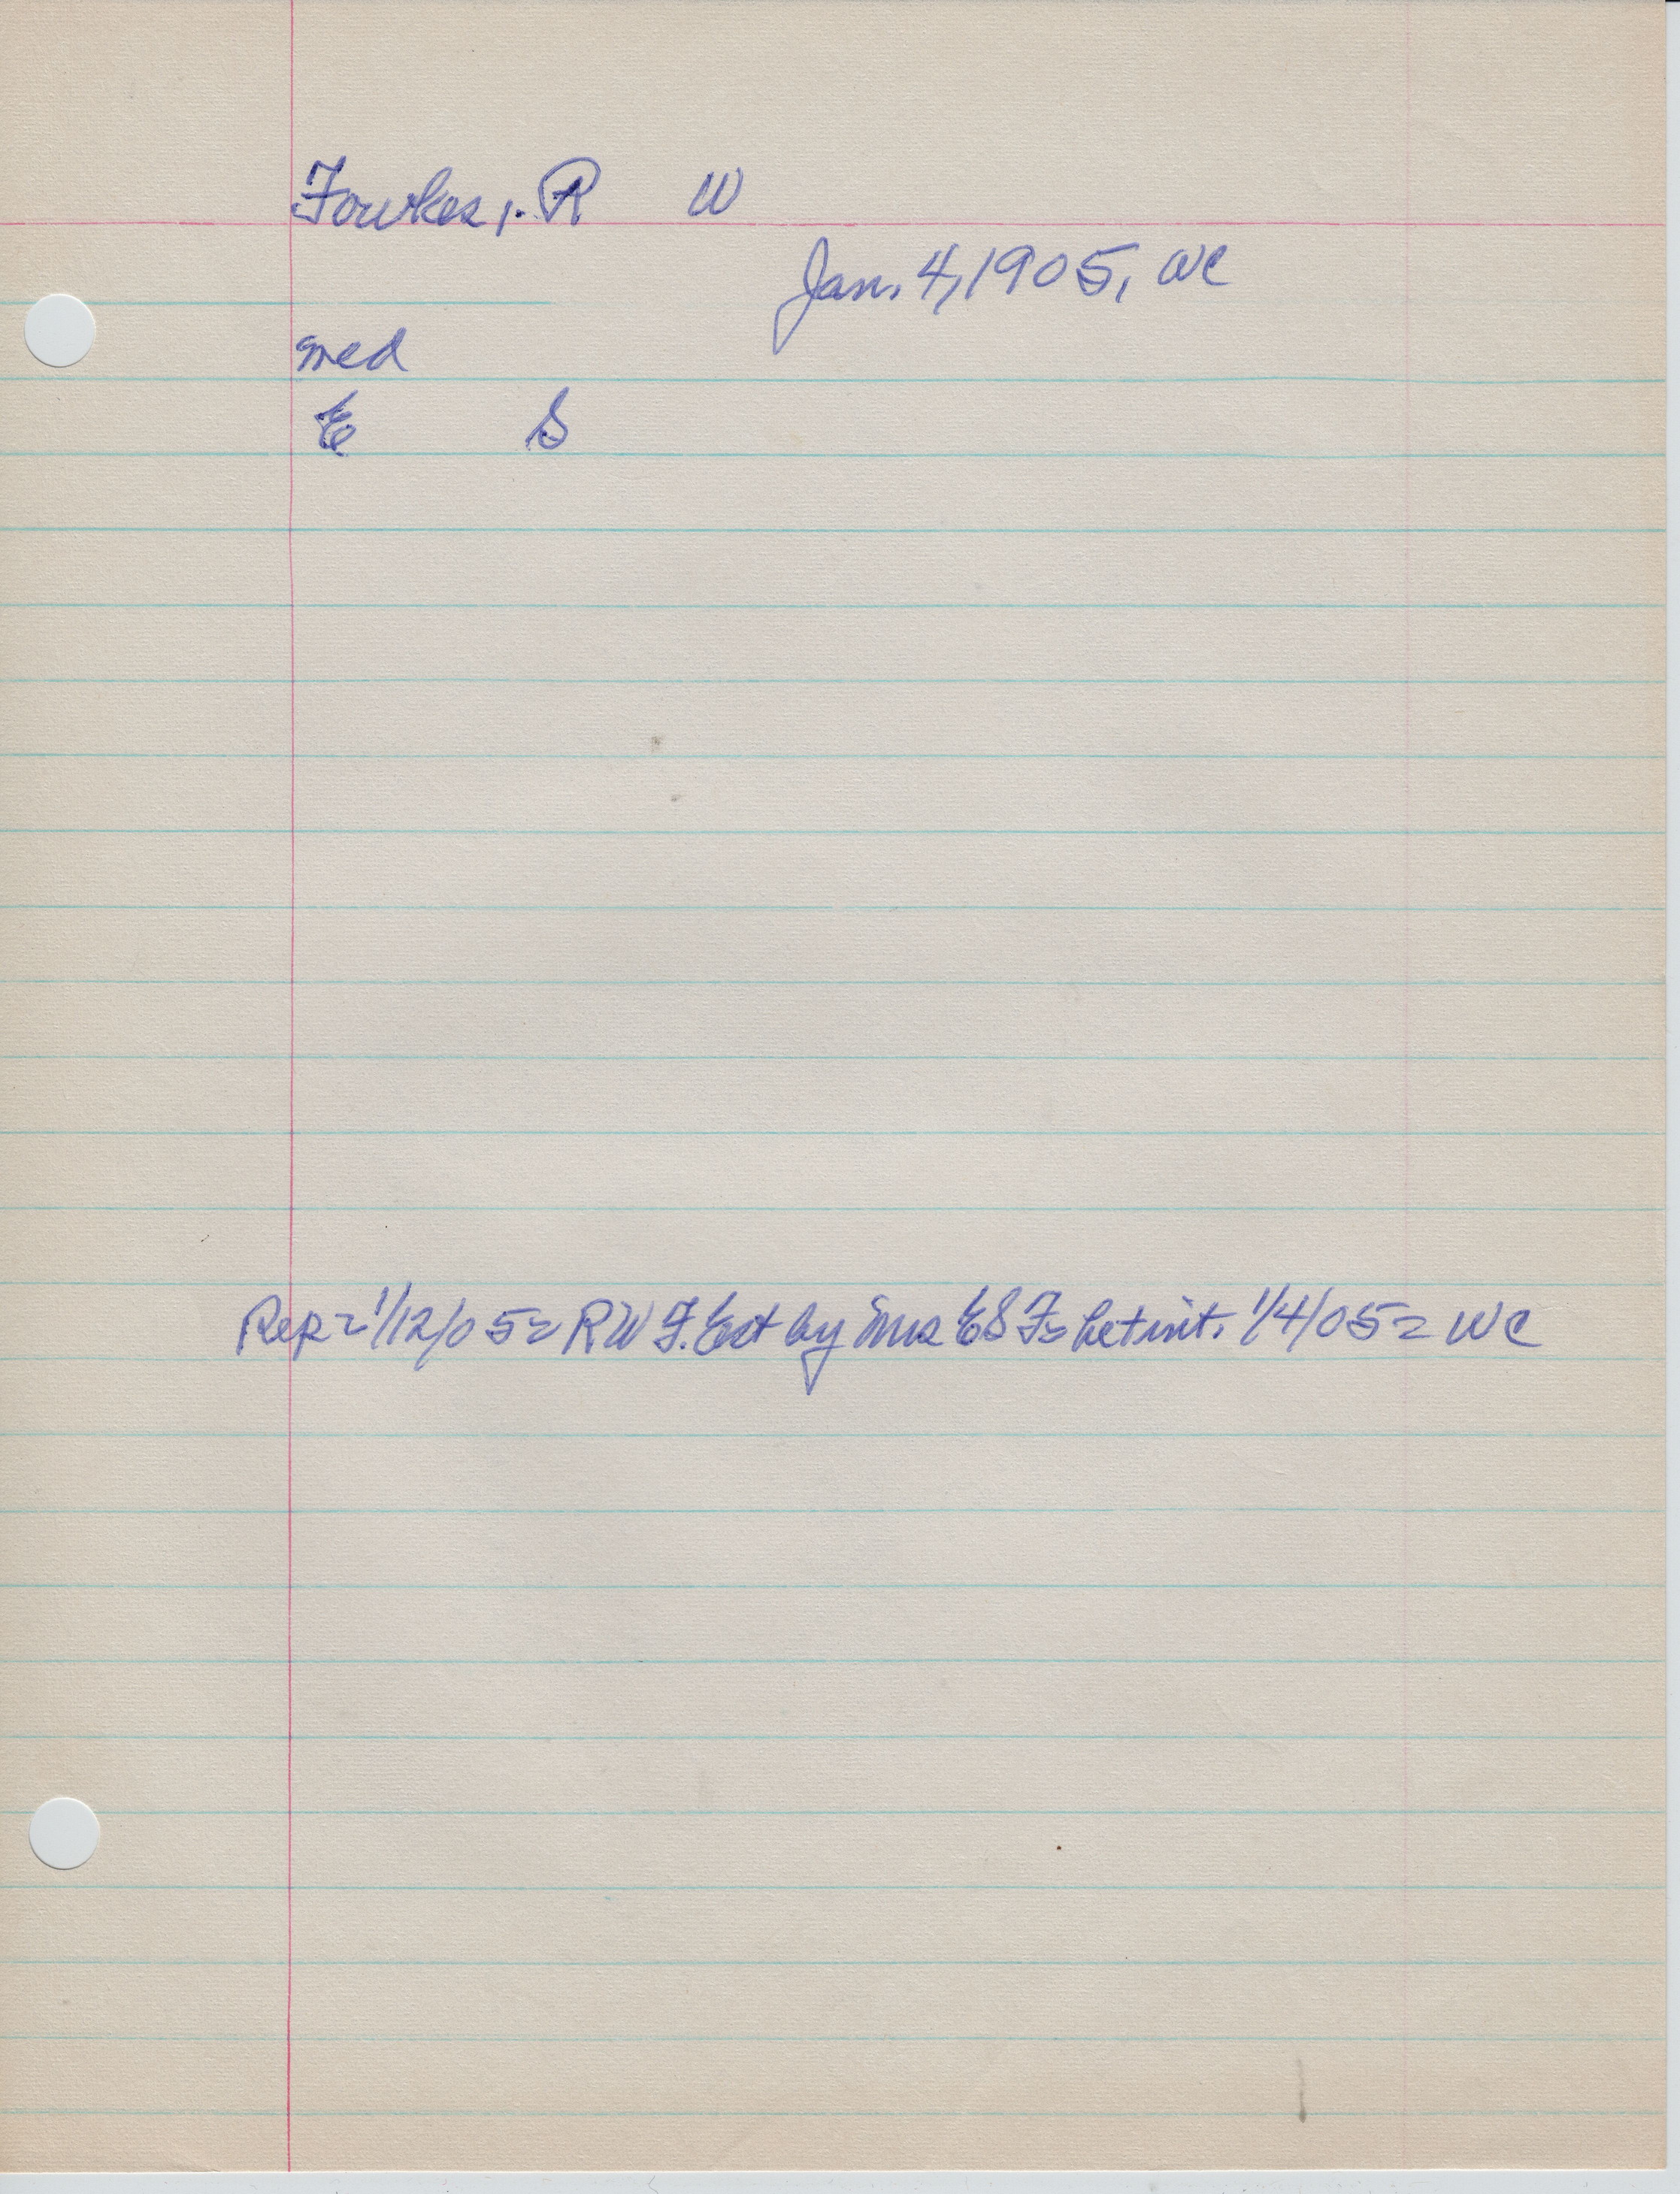 Fowlkes, R W
Jan. 4, 1905, WC
med
E S
Rep = 1/12/05 = R W F. Est by Mrs E S F = Let wit. 1/4/05 = WC